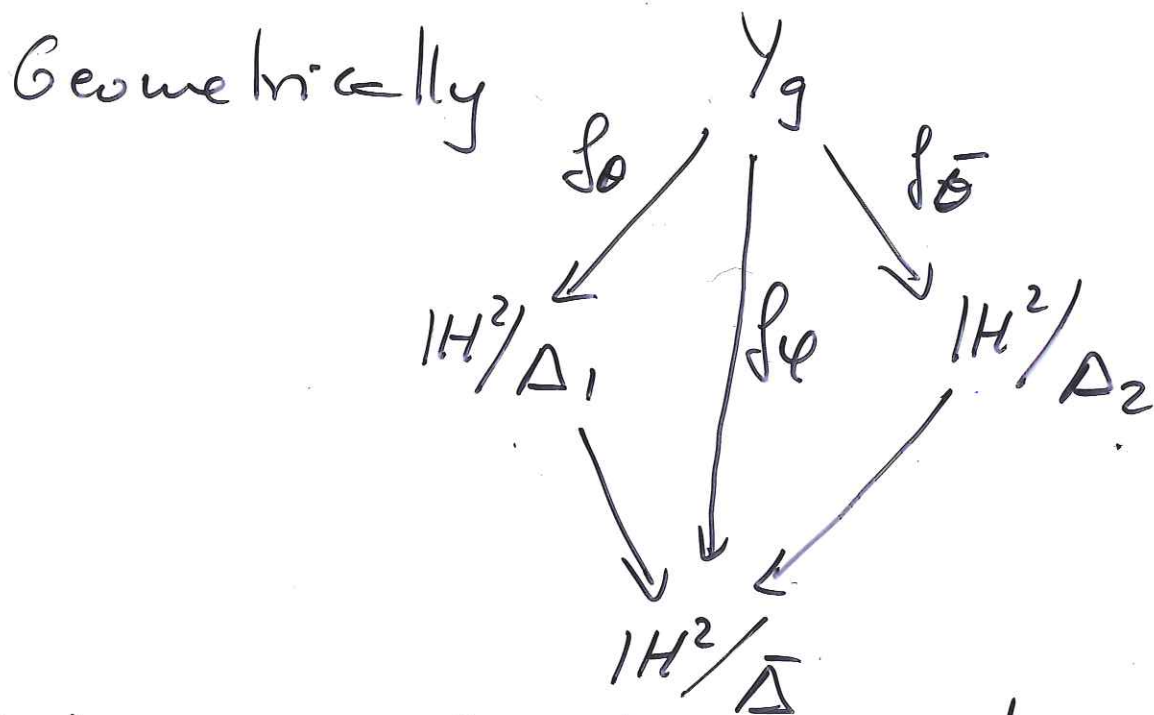 Geometrically
Y_g
f_θ f_θ̄
ℍ²/Δ₁ f_φ ℍ²/Δ₂
ℍ²/Δ̄